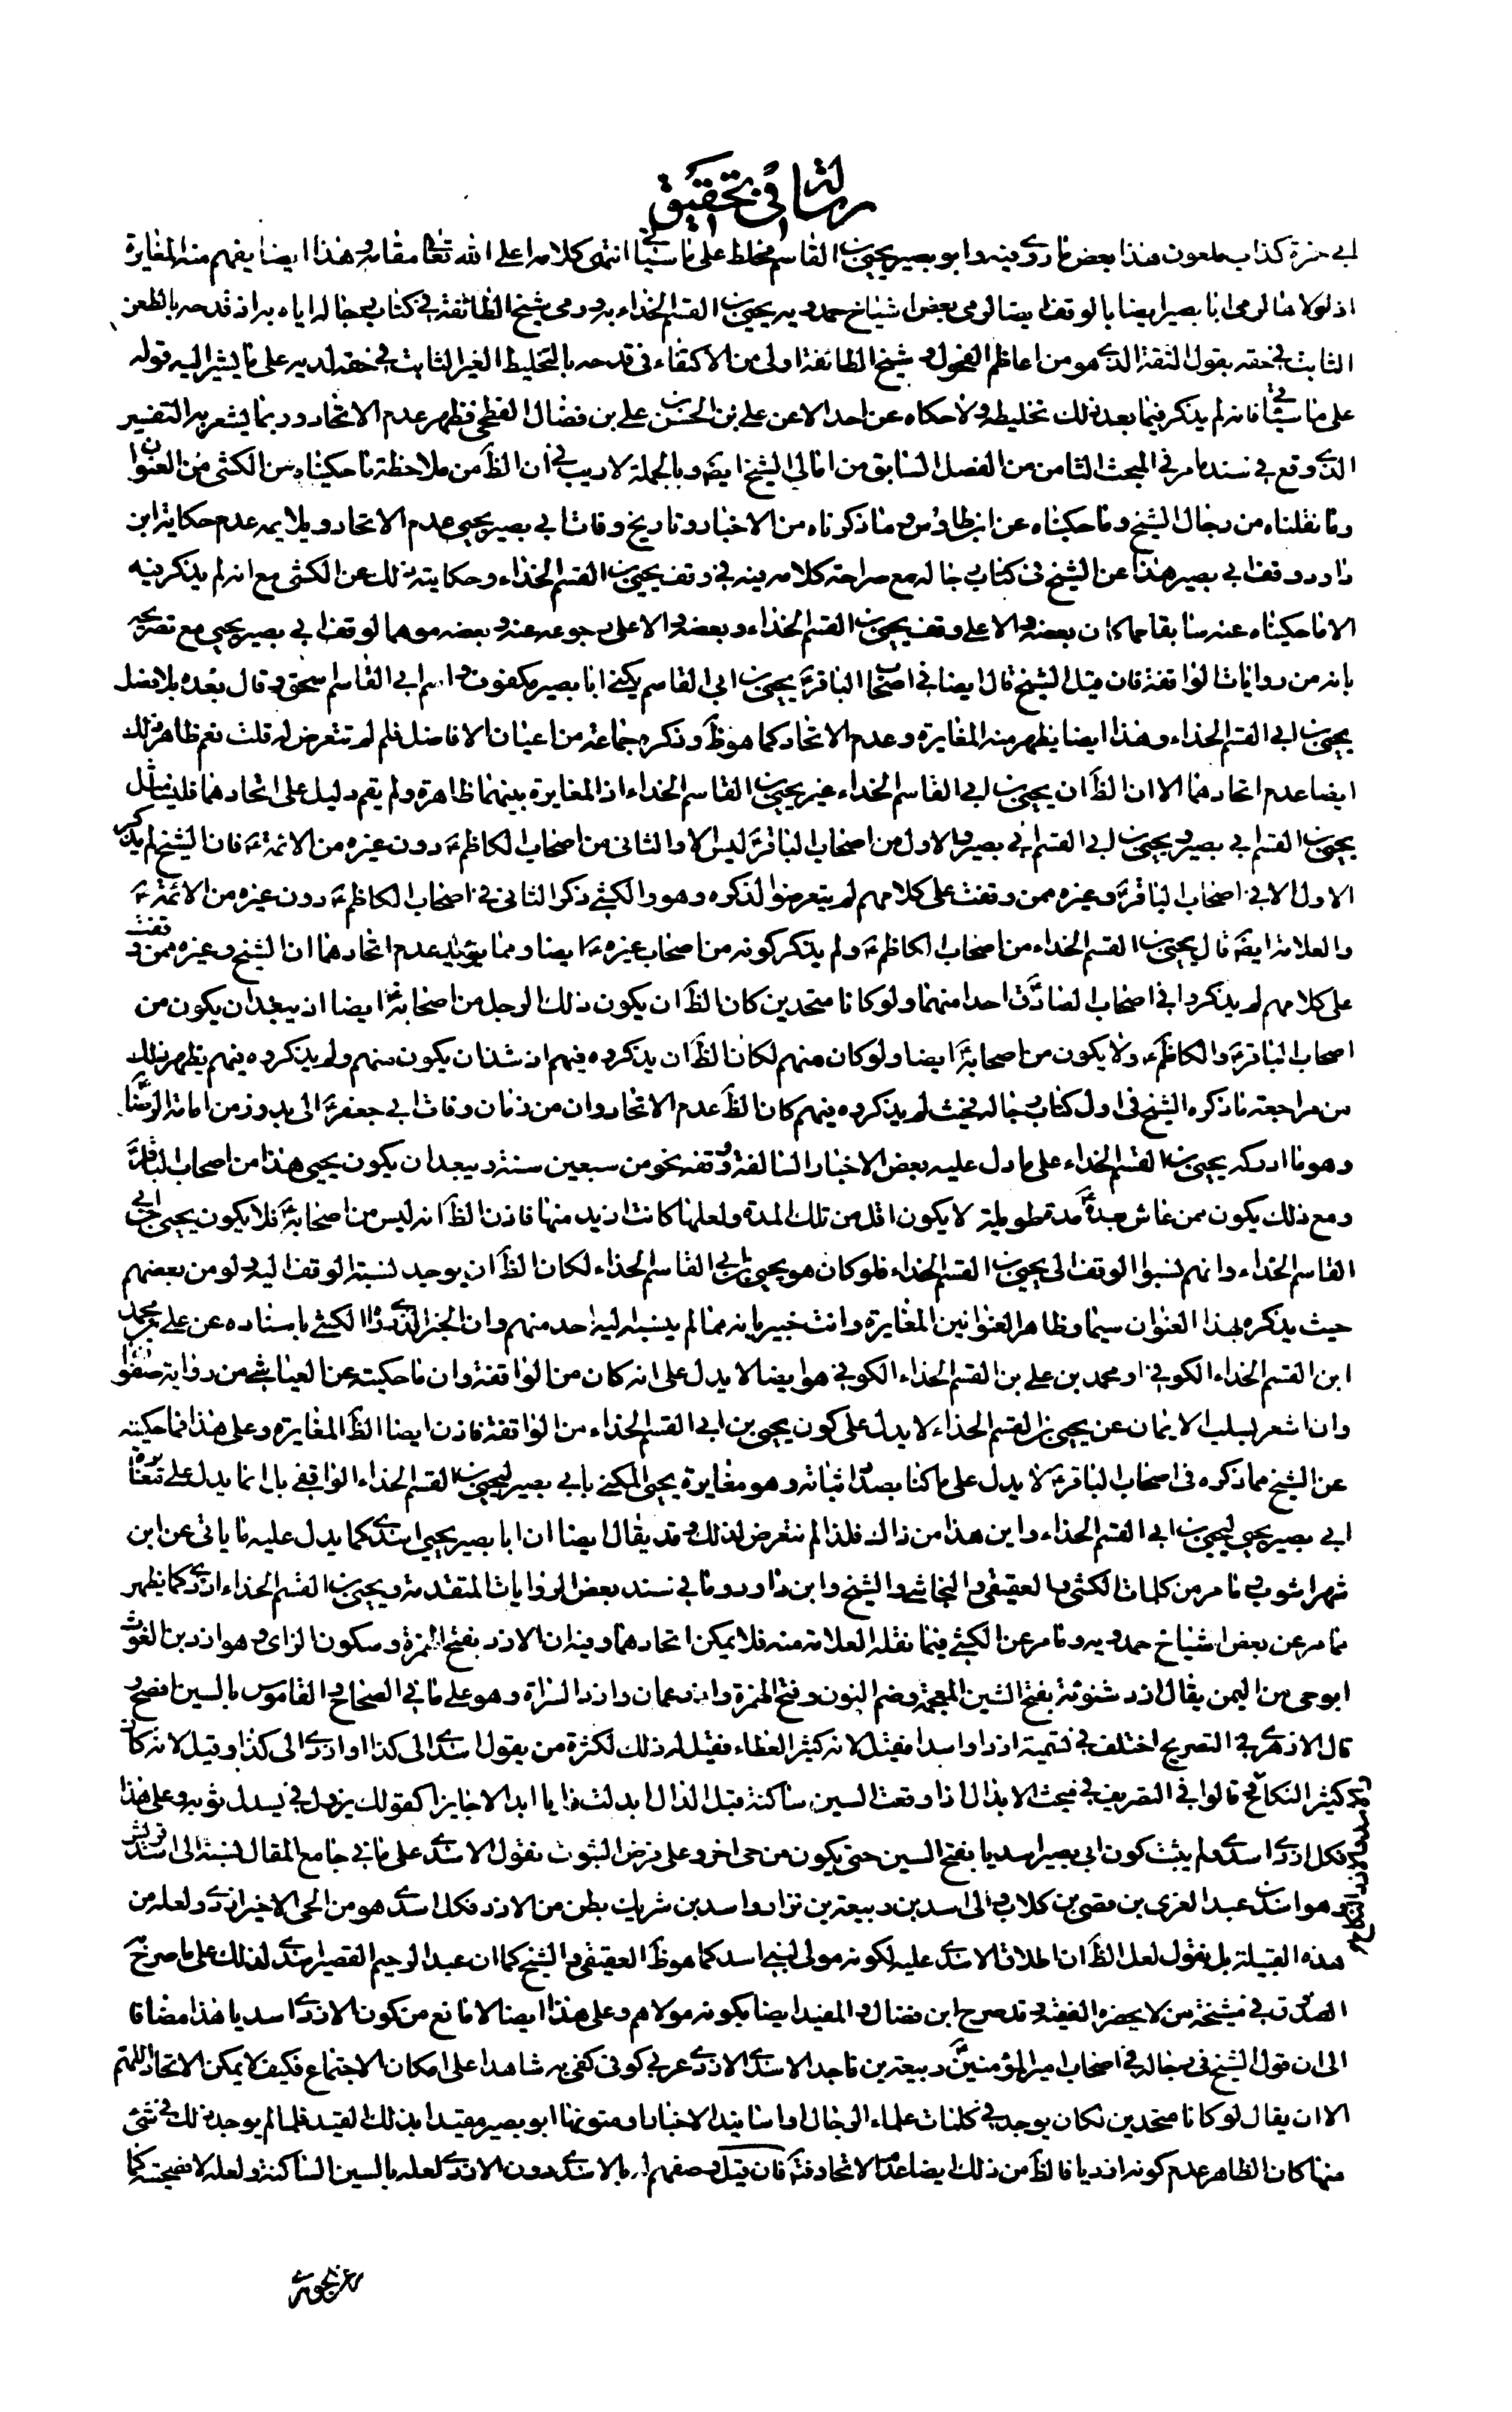 رسالة في تحقيق
ابي حمزة كذاب ملعون هذا بعض ما روي فيه وابو بصير يحيى بن القاسم مخلط على ما سيأتي انتهى كلامه اعلى الله تعالى مقامه وهذا ايضا يفهم منه المغايرة
اذ لولاها لرمى ابا بصير ايضا بالوقف ايضا لرمي بعض اشياخ حمدويه يحيى بن القسم الحذاء به ورمي شيخ الطائفة في كتاب رجاله اياه به اذ قدحه بالطعن
الثابت في حقه بقول الثقة الذي هو من اعاظم الفحول وشيخ الطائفة اولى من الاكتفاء في قدحه بالتخليط الغير الثابت في حقه لديه على ما يشير اليه قوله
على ما سيأتي فانه لم يذكر فيما بعد ذلك تخليطه ولا حكاه عن احد الا عن علي بن الحسن بن علي بن فضال الفطحي فظهر عدم الاتحاد وربما يشعر به التفسير
الذي وقع في سند ما مر في المبحث الثامن من الفصل السابق من امالي الشيخ ايضا وبالجملة لا ريب في ان الظ من ملاحظة ما حكيناه من الكشي من العنوان
وما نقلناه من رجال الشيخ وما حكيناه عن ابن طاوس وما ذكرناه من الاخبار وتاريخ وفات ابي بصير يحيى عدم الاتحاد ويلايمه عدم حكاية ابن
داود وقف ابي بصير هذا عن الشيخ في كتاب رجاله مع صراحة كلامه فيه في وقف يحيى بن القسم الحذاء وحكايته ذلك عن الكشي مع انه لم يذكر فيه
الا ما حكيناه عنه سابقا مما كان بعضه دالا على وقف يحيى بن القسم الحذاء وبعضه دالا على رجوعه عنه وبعضه موهما لوقف ابي بصير يحيى مع تصريحه
بانه من روايات الواقفة فان قيل الشيخ قال ايضا في اصحاب الباقر ع يحيى بن ابي القاسم يكنى ابا بصير مكفوف واسم ابي القاسم اسحق وقال بعده بلا فصل
يحيى بن ابي القسم الحذاء وهذا ايضا يظهر منه المغايرة وعدم الاتحاد كما هو ظ وذكره جماعة من اعيان الافاضل فلم لم تتعرض له قلت نعم ظاهر ذلك
ايضا عدم اتحادهما الا ان الظ ان يحيى بن ابي القاسم الحذاء غير يحيى بن القاسم الحذاء اذ المغايرة بينهما ظاهرة ولم يقم دليل على اتحادهما فليتأمل
يحيى بن القسم ابي بصير ويحيى بن ابي القسم ابي بصير والاول من اصحاب الباقر ع ليس الا والثاني من اصحاب الكاظم ع دون غيره من الائمة ع فان الشيخ لم يذكر
الاول الا في اصحاب الباقر ع وغيره ممن وقفت على كلامهم لم يتعرضوا لذكره وهو والكشي ذكرا الثاني في اصحاب الكاظم ع دون غيره من الائمة ع
والعلامة ايضا قال يحيى بن القسم الحذاء من اصحاب الكاظم ع ولم يذكر كونه من اصحاب غيره ع ايضا ومما يؤيد عدم اتحادهما ان الشيخ وغيره ممن وقفت
على كلامهم لم يذكروا في اصحاب الصادق ع احدا منهما ولو كانا متحدين كان الظ ان يكون ذلك الرجل من اصحابه ع ايضا اذ يبعد ان يكون من
اصحاب الباقر ع والكاظم ع ولا يكون من اصحابه ع ايضا ولو كان منهم لكان الظ ان يذكروه فيهم اذ شذ ان يكون منهم ولم يذكروه فيهم يظهر ذلك
من مراجعة ما ذكره الشيخ في اول كتاب رجاله فحيث لم يذكروه فيهم كان الظ عدم الاتحاد وان من زمان وفات ابي جعفر ع الى بدو زمن امامة الرضا ع
وهو ما ادركه يحيى بن القسم الحذاء على ما دل عليه بعض الاخبار السالفة وقفه نحو من سبعين سنة ويبعد ان يكون يحيى هذا من اصحاب الباقر ع
ومع ذلك يكون ممن عاش بعده ع مدة طويلة لا يكون اقل من تلك المدة ولعلها كانت ازيد منها فاذن الظ انه ليس من اصحابه ع فلا يكون يحيى بن ابي
القاسم الحذاء وانهم نسبوا الوقف الى يحيى بن القسم الحذاء فلو كان هو يحيى بن ابي القاسم الحذاء لكان الظ ان يوجد نسبة الوقف اليه ولو من بعضهم
حيث يذكره بهذا العنوان سيما وظاهر العنوانين المغايرة وانت خبير بانه مما لم ينسبه اليه احد منهم وان الخبر الذي رواه الكشي باسناده عن علي بن محمد
ابن القسم الحذاء الكوفي او محمد بن علي بن القسم الحذاء الكوفي هو ايضا لا يدل على انه كان من الواقفة وان ما حكيته عن العياشي من رواية
وان اشعر بسلب الايمان عن يحيى بن القسم الحذاء لا يدل على كون يحيى بن ابي القسم الحذاء من الواقفة فاذن ايضا الظ المغايرة وعلى هذا فما حكيته
عن الشيخ مما ذكره في اصحاب الباقر ع لا يدل على ما كنا بصدد اثباته وهو مغايرة يحيى المكنى بابي بصير ليحيى بن القسم الحذاء الواقفي بل انما يدل على مغايرة
ابي بصير يحيى ليحيى بن ابي القسم الحذاء واين هذا من ذاك فلذا لم نتعرض لذلك وقد يقال ايضا ان ابا بصير يحيى اسدي كما يدل عليه ما ياتي عن ابن
شهراشوب وما مر من كلمات الكشي والعقيقي والنجاشي والشيخ وابن داود وما في سند بعض الروايات المتقدمة ويحيى بن القسم الحذاء ازدي كما يظهر
مما مر عن بعض اشياخ حمدويه وما مر عن الكشي فيما نقله العلامة منه فلا يمكن اتحادهما وفيه ان الازد بفتح الهمزة وسكون الزاي وهو ازد بن الغوث
ابو حي من اليمن يقال ازد شنوئة بفتح الشين المعجمة وضم النون وفتح الهمزة وازد عمان وازد السراة وهو على ما في الصحاح والقاموس بالسين افصح و
قال الازهري في التصريح اختلف في تسميته ازدا واسدا فقيل لانه كثير العطاء فقيل له ذلك لكثرة من يقول اسدى الى كذا او ازدى الى كذا وقيل لانه كان
كثير النكاح قالوا في التصريف في مبحث الابدال اذا وقعت السين ساكنة قبل الدال ابدلت زايا ابدالا جايزا كقولك يزدل في يسدل ثوبه وعلى هذا
فكل ازدي اسدي ولم يثبت كون ابي بصير اسديا بفتح السين حتى يكون من حي اخر وعلى فرض الثبوت نقول الاسدي على ما في جامع المقال نسبة الى اسد قريش
وهو اسد بن عبد العزى بن قصي بن كلاب والى اسد بن ربيعة بن نزار واسد بن شريك بطن من الازد فكل اسدي هو من الحي الاخير ازدي ولعله من
هذه القبيلة بل نقول لعل الظ ان اطلاق الاسدي عليه لكونه مولى لبني اسد كما هو ظ العقيقي والشيخ كما ان عبد الرحيم القصير اسدي لذلك على ما صرح به
الصدوق في مشيخة من لا يحضره الفقيه وقد صرح ابن فضال والمفيد ايضا بكونه مولاهم وعلى هذا ايضا لا مانع من كون الازدي اسديا هذا مضافا
الى ان قول الشيخ في رجاله في اصحاب امير المؤمنين ع ربيعة بن ناجد الاسدي الازدي عربي كوفي كفى به شاهدا على امكان الاجتماع فكيف لا يمكن الاتحاد اللهم
الا ان يقال لو كانا متحدين لكان يوجد في كلمات علماء الرجال او اسانيد الاخبار او متونها ابو بصير مقيدا بذلك القيد فلما لم يوجد ذلك في شئ
منها كان الظاهر عدم كونه ازديا فالظ من ذلك ايضا عدم الاتحاد فتأمل فان قيل وصفهم اياه بالاسدي دون الازدي لعله بالسين الساكنة ولعله لافصحيته كما